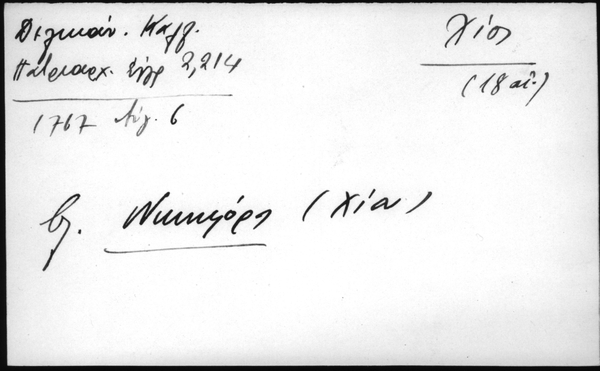 Δελικάν. Καλλ.
Πατριαρχ. Ἔγγρ 2,214
1767 Αὐγ. 6
Χίος
(18 αἰ.)
βλ. Νικηφόρος (Χίου)